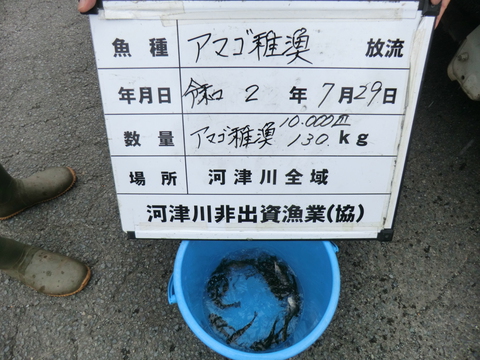 魚種 アマゴ稚漁 放流
年月日 令和 2 年 7月29日
数量 アマゴ稚漁 10.000皿 130.kg
場所 河津川全域
河津川非出資漁業(協)